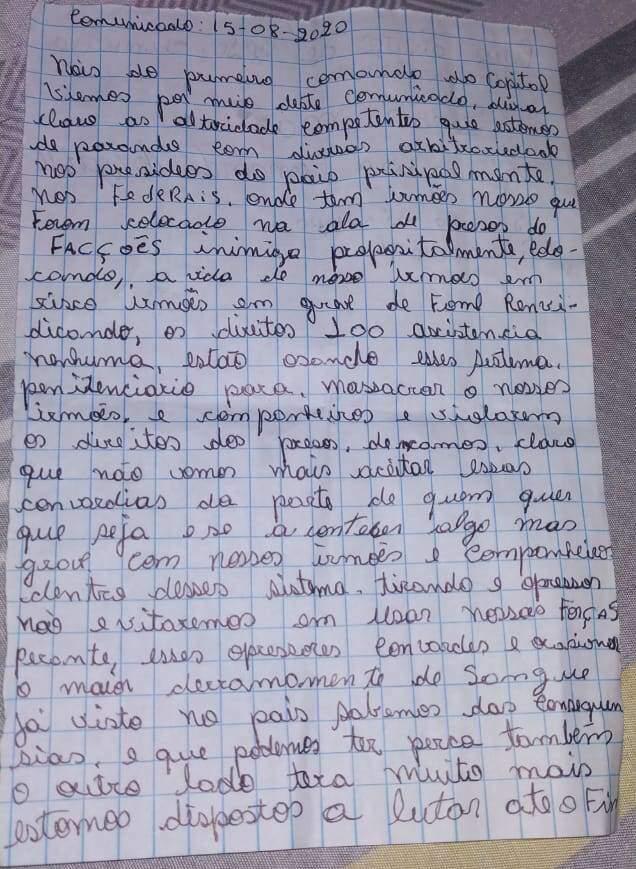 Comunicado: 15-08-2020
Nois do primeiro comando do Capital
Viemos por meio deste comunicado, deixar
claro as altoricidade competentes que estamos
de parando com diversas arbitrariedade
nos presideos do pais prisipalmente,
nos FedeRAiS, onde tem irmões nosso que
Foram colocado na ala de presos de
FACÇOES inimiga propositalmente, colo-
cando,, a vida de nosso irmoes em
risco irmões em greve de Fome Renvi-
dicando, os direitos 100 acistencia
nenhuma, estão osando esses sistema,
penidenciario para, massacrar o nossos
irmões, e companheiros e violarem
os direitos dos presos, deixamos, claro
que não vamos mais aceitar essas
convardias da parte de quem quer
que seja e se a conteser algo mas
grave com nossos irmões e companheiros
dentro desses sistema. tirando e opressor
não evitaremos em usar nossas FORÇAS
perante, esses opressores convardes e ocasionar
o maior derramamento de Sangue
já visto no pais sabemos das Consequen
sias, e que podemos ter perca também
o outro lado tera muito mais
estamos dispostos a lutar ate o Fim